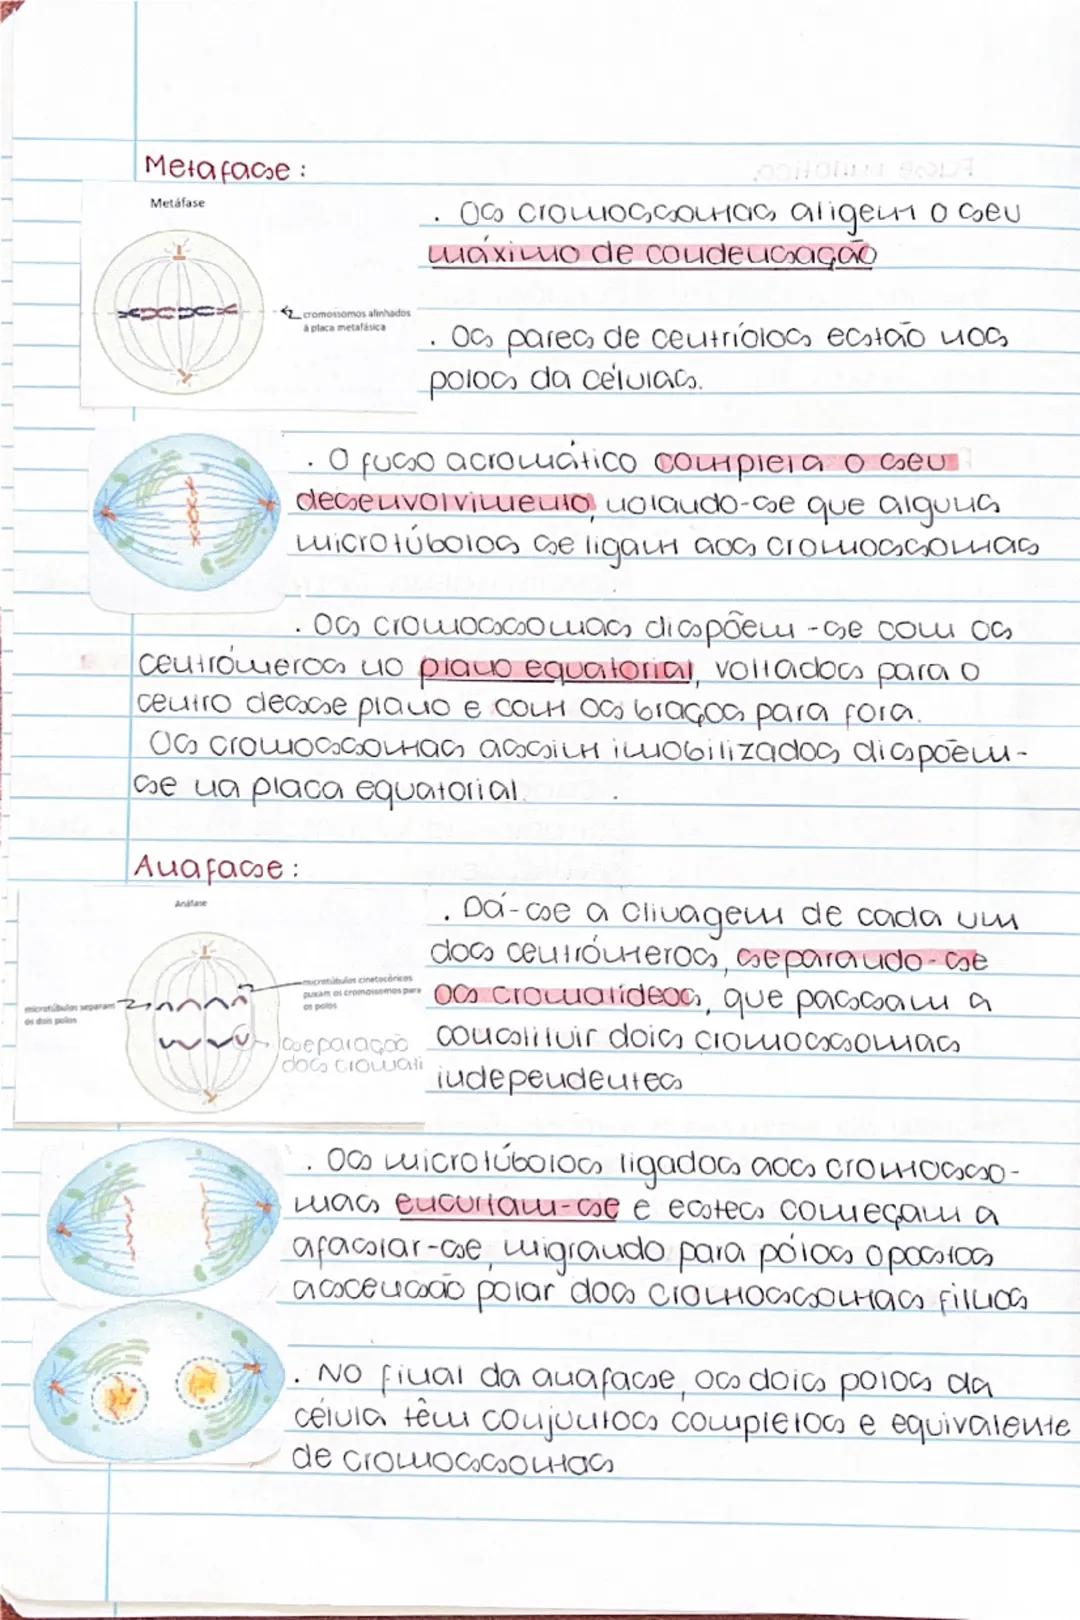 Metafase:
Metáfase
. Os cromossomas atigem o seu
máximo de condensação
cromossomos alinhados
à placa metafásica
. Os pares de centríolos estão nos
polos da células.
. O fuso acromático completa o seu
desenvolvimento, notando-se que alguns
microtúbolos se ligam aos cromossomas
. Os cromossomas dispõem-se com os
centrómeros no plano equatorial, voltados para o
centro desse plano e com os braços para fora.
Os cromossomas assim imobilizados dispõem-
se na placa equatorial.
Anafase:
Anáfase
. Dá-se a clivagem de cada um
dos centrómeros, separando-se
os cromatídeos, que passam a
constituir dois cromossomas
independentes
microtúbulos separam
os dois polos
microtúbulos cinetocóricos
puxam os cromossomos para
os polos
separação
dos cromati
. Os microtúbolos ligados aos cromosso-
mas encurtam-se e estes começam a
afastar-se, migrando para pólos opostos
ascensão polar dos cromossomas filhos
. No final da anafase, os dois polos da
célula têm conjuntos completos e equivalente
de cromossomas